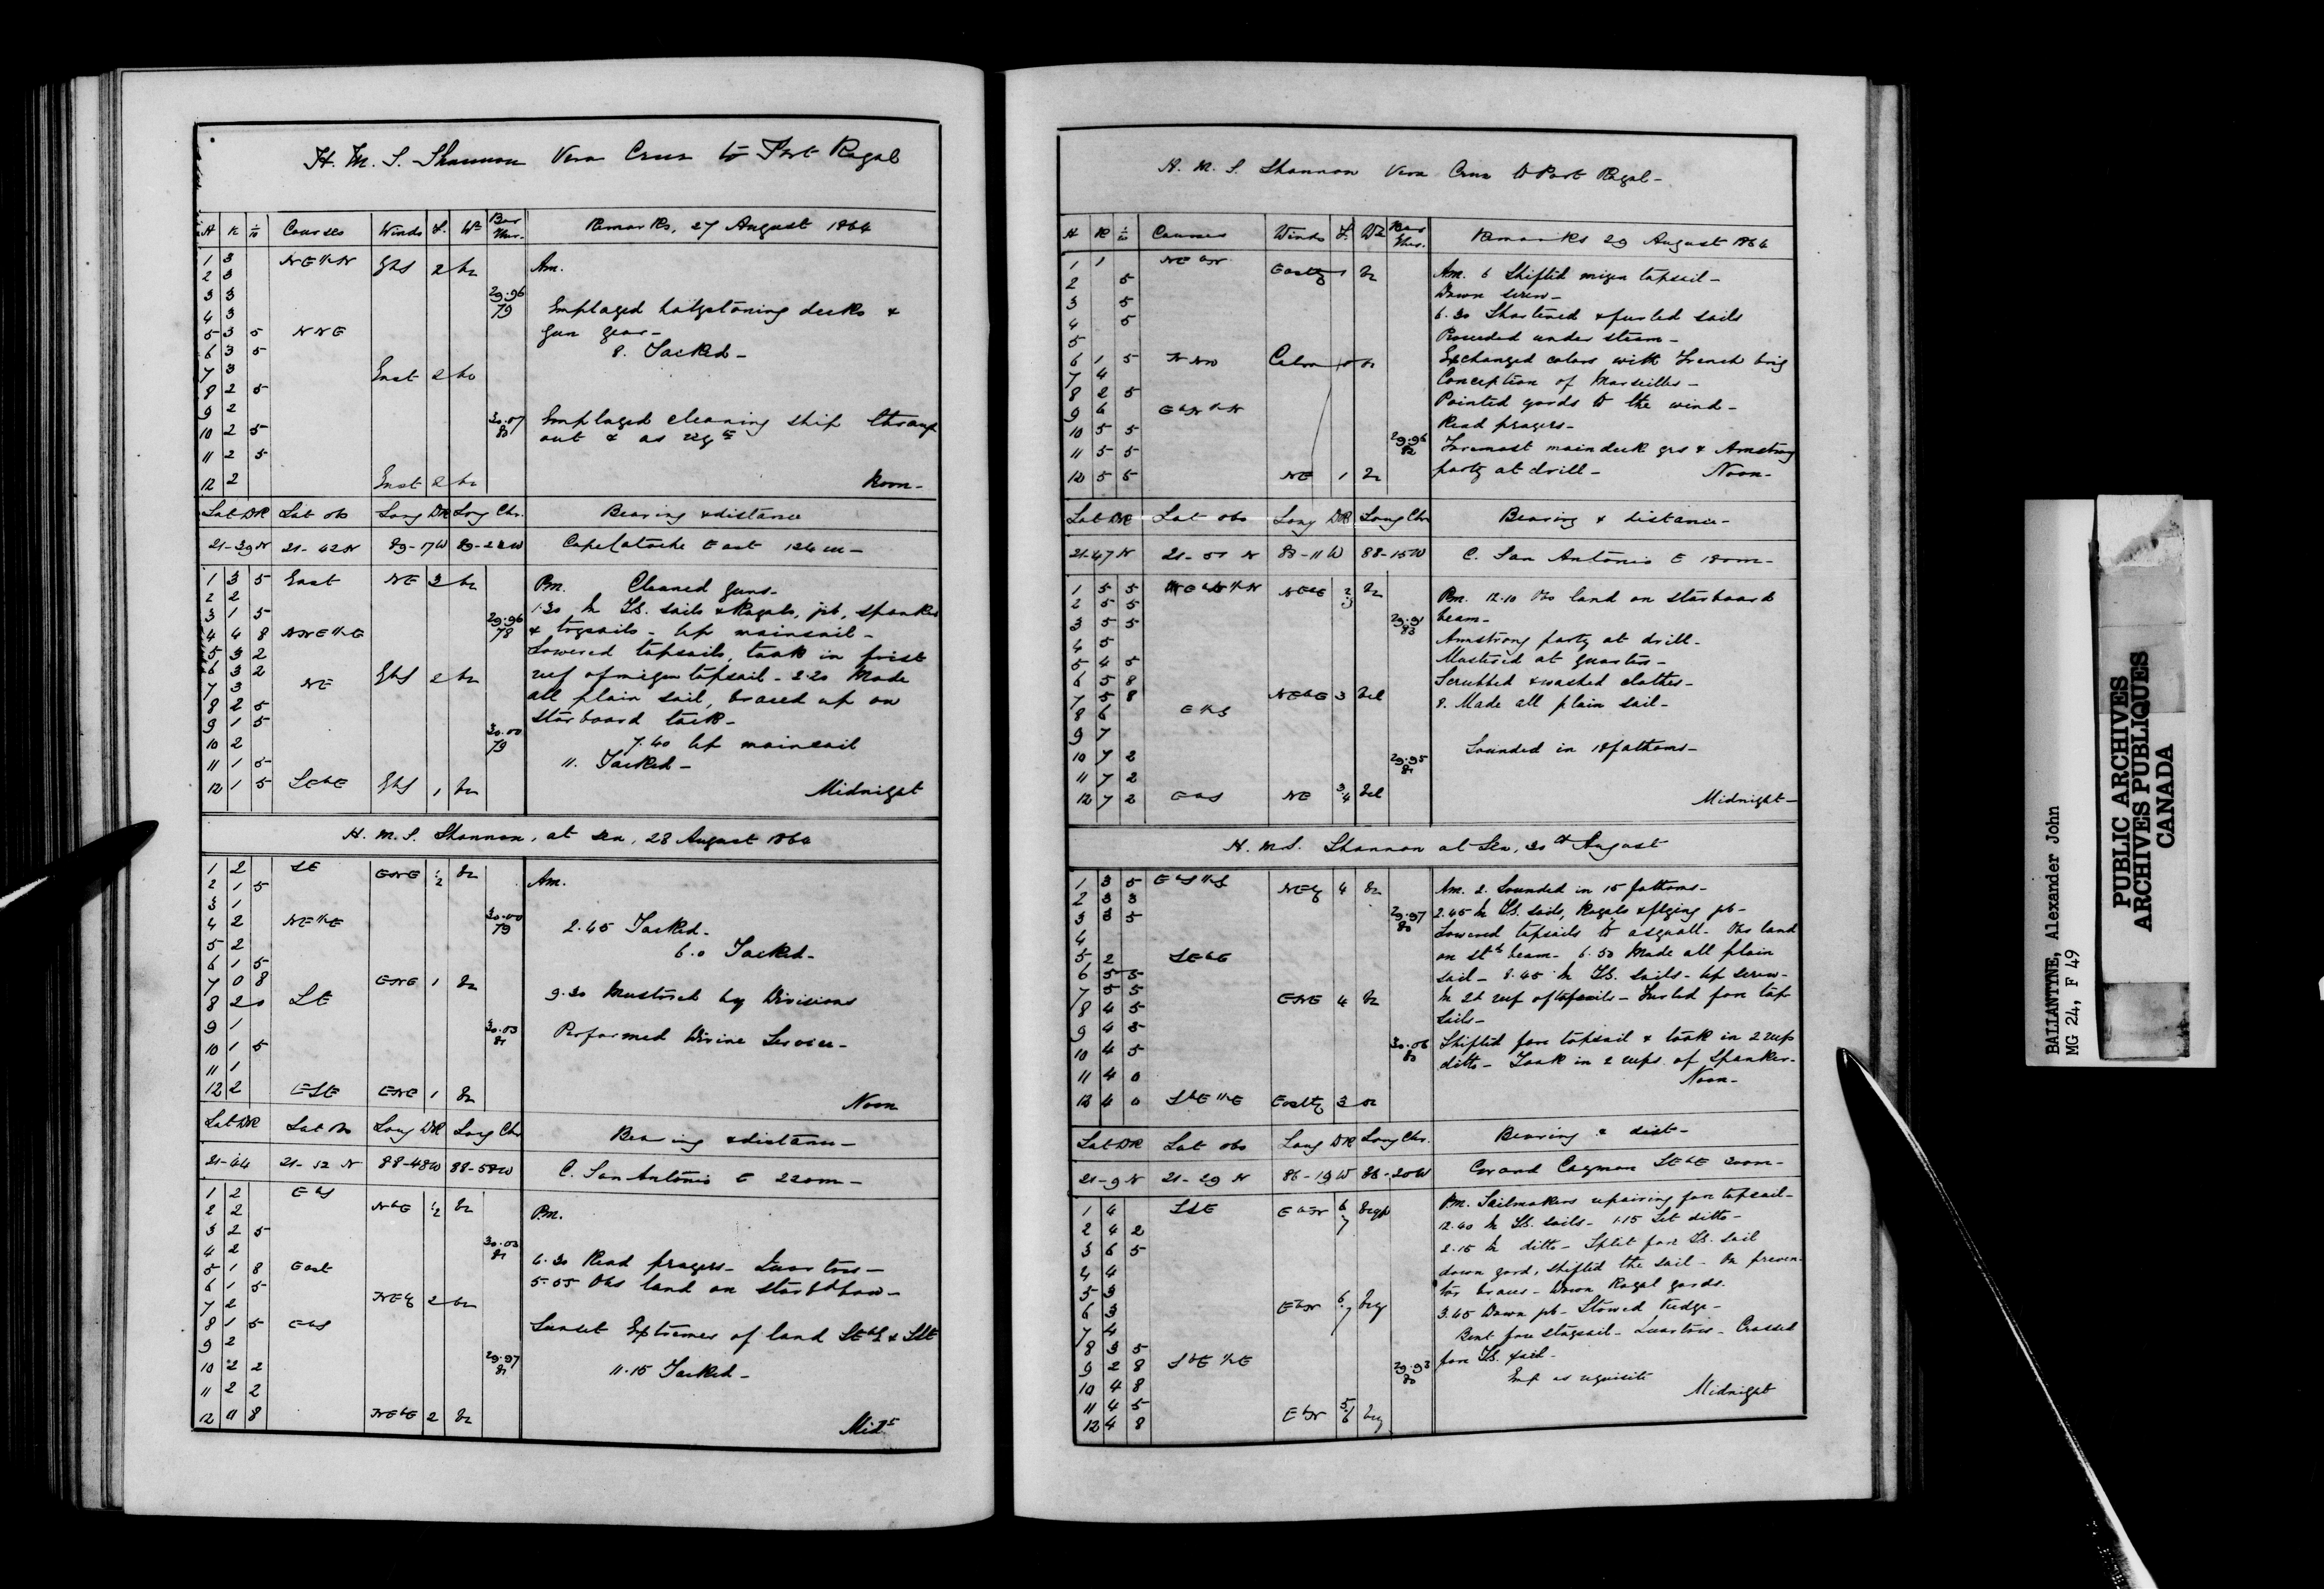 H. M. S. Shannon Vera Cruz to Port Royal
H K 1/10 Courses Winds F. Wr Bar Ther. Remarks, 27 August 1864
1 3 NE½N EbS 2 bc Am.
2 3
3 3 29.96 Employed holystoning decks &
4 3 79 gun gear-
5 3 5 NNE
6 3 5 8. Tacked-
7 3 East 2 bc
8 2 5
9 2 30.07 Employed cleaning ship through
10 2 5 81 out & as reqte
11 2 5
12 2 East 2 bc Noon-
Lat DR Lat obs Long DR Long Chr. Bearing & distance
21-39N 21-42N 89-17W Cape Catoche East 124m-
1 3 5 East NE 3 bc Pm. Cleaned guns-
2 2 1.30 In Sts. sails & Royals, jib, spanker
3 1 5 29.96 & trysails- Up mainsail-
4 4 8 NNE½E 78 Lowered topsails, took in first
5 3 2 reef of mizen topsail- 2.20 Made
6 3 2 EbS 2 bc all plain sail, braced up on
7 3 NE starboard tack-
8 2 5
9 1 5 30.00 7.40 Up mainsail
10 2 79
11 1 5 11. Tacked-
12 1 5 SEbE EbS 1 bc Midnight
H. M. S. Shannon, at sea, 28 August 1864
1 2 SE ENE 1/2 bc Am.
2 1 5
3 1 30.00
4 2 NE½E 79 2.45 Tacked-
5 2 6.0 Tacked-
6 1 5
7 0 8 ENE 1 bc
8 2 0 SE 9.30 Mustered by Divisions
9 1 30.03
10 1 5 81 Performed Divine Service-
11 1
12 2 ESE ENE 1 bc Noon
Lat DR Lat Obs Long DR Long Chr Bearing & distance-
21-44 21-52 N 88-48W 88-58W C. San Antonio E 220m-
1 2 EbS NbE 1/2 bc Pm.
2 2
3 2 5 30.03
4 2 81
5 1 8 East 4.30 Read prayers- Quarters-
6 1 5 5.55 Obs land on starbd bow-
7 2 NEy 2 bc
8 1 5 EbS Sunset Extremes of land SEbS & SSE
9 2 29.97
10 2 2 81 11.15 Tacked-
11 2 2
12 8 NEbE 2 bc Midt
H. M. S. Shannon Vera Cruz to Port Royal-
H K 1/10 Courses Winds F. Wr Bar Ther. Remarks 29 August 1864
1 1 NEbN Eastly 1 bc Am. 6 Shifted mizen topsail-
2 5 Down screw-
3 5 6.30 Shortened & furled sails
4 5 Proceeded under steam-
5 Exchanged colors with French brig
6 1 5 NNW Calm 0 bc Conception of Marseilles-
7 4 Pointed yards to the wind-
8 2 5 Read prayers-
9 6 EbN½N
10 5 5 29.96 Foremost maindeck qrs & Armstrong
11 5 5 82 party at drill-
12 5 5 NE 1 bc Noon-
Lat DR Lat obs Long DR Long Chr Bearing & distance-
21-47 N 21-51 N 88-11 W 88-15W C. San Antonio E 180m-
1 5 5 NEbE 2/3 bc Pm. 12.10 Obs land on starboard
2 5 5 beam-
3 5 5 29.91 Armstrong party at drill-
4 5 83 Mustered at quarters-
5 4 5 Scrubbed & washed clothes-
6 5 8
7 5 8 NEbE 3 bcl 8. Made all plain sail-
8 6 E½S
9 7 Sounded in 18 fathoms-
10 7 2 29.95
11 7 2 81
12 7 2 EbS NE 3/4 bcl Midnight-
H. M. S. Shannon at Sea, 30th August
1 3 5 EbS½S NEy 4 bc Am. 2. Sounded in 15 fathoms-
2 3 3 2.45 In Sts. sails, Royals & flying jib-
3 3 5 29.97 Lowered topsails to a squall- Obs land
4 80 on stb beam- 6.50 Made all plain
5 2 SEbE sail- 8.45 In Sts. sails- Up screw-
6 5 5 In 2d reef of topsails- Furled fore top
7 5 5 ENE 4 bc sails-
8 4 5
9 4 5 30.06 Shifted fore topsail & took in 2 reefs
10 4 5 80 ditto- Took in 2 reefs of spanker-
11 4 0
12 4 0 SbE½E Eastly 3 bc Noon-
Lat DR Lat obs Long DR Long Chr. Bearing & dist-
21-9 N 21-29 N 86-19 W 86-20W Grand Cayman SEbE 200m-
1 4 SSE EbN 6/7 bcqp Pm. Sailmakers repairing fore topsail-
2 4 2 12.40 In Sts. sails- 1.15 Set ditto-
3 6 5 2.15 In ditto- Split fore Ts. sail
4 4 down yard, shifted the sail- On preven-
5 3 ter braces- Down Royal yards.
6 3 EbN 6/7 bcq 3.45 Down jib- Stowed kedge-
7 4 Bent fore staysail- Quarters- Crossed
8 3 5 fore Ts. yard-
9 2 8 SbE½E 29.93 Emp as requisite
10 4 8 80 Midnight
11 4 5
12 4 8 EbN 5/6 bcq
BALLANTYNE, Alexander John
MG 24, F 49
PUBLIC ARCHIVES
ARCHIVES PUBLIQUES
CANADA